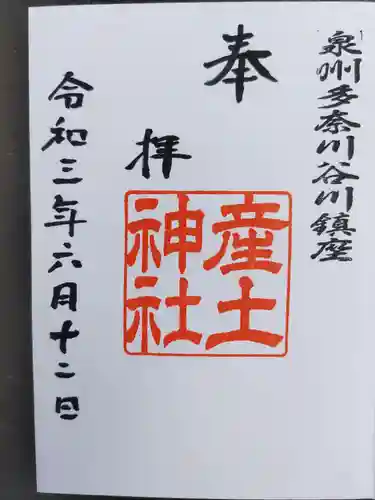 泉州多奈川谷川鎮座
奉拝
産土神社
令和三年六月十二日